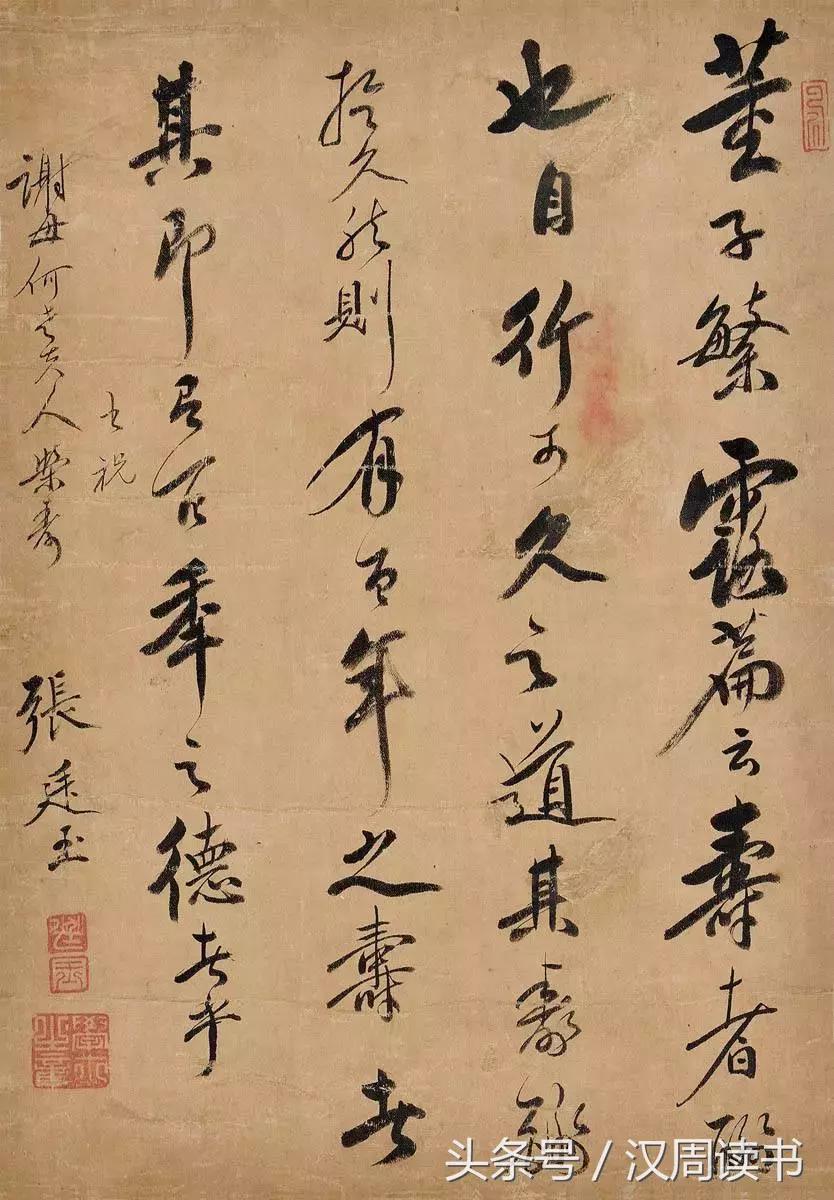 董子繁露篇云壽者酬
也自行可久之道其壽
於久然則有百年之壽者
其即有百年之德者乎
書祝
謝母何老夫人榮壽
張廷玉
头条号 / 汉周读书